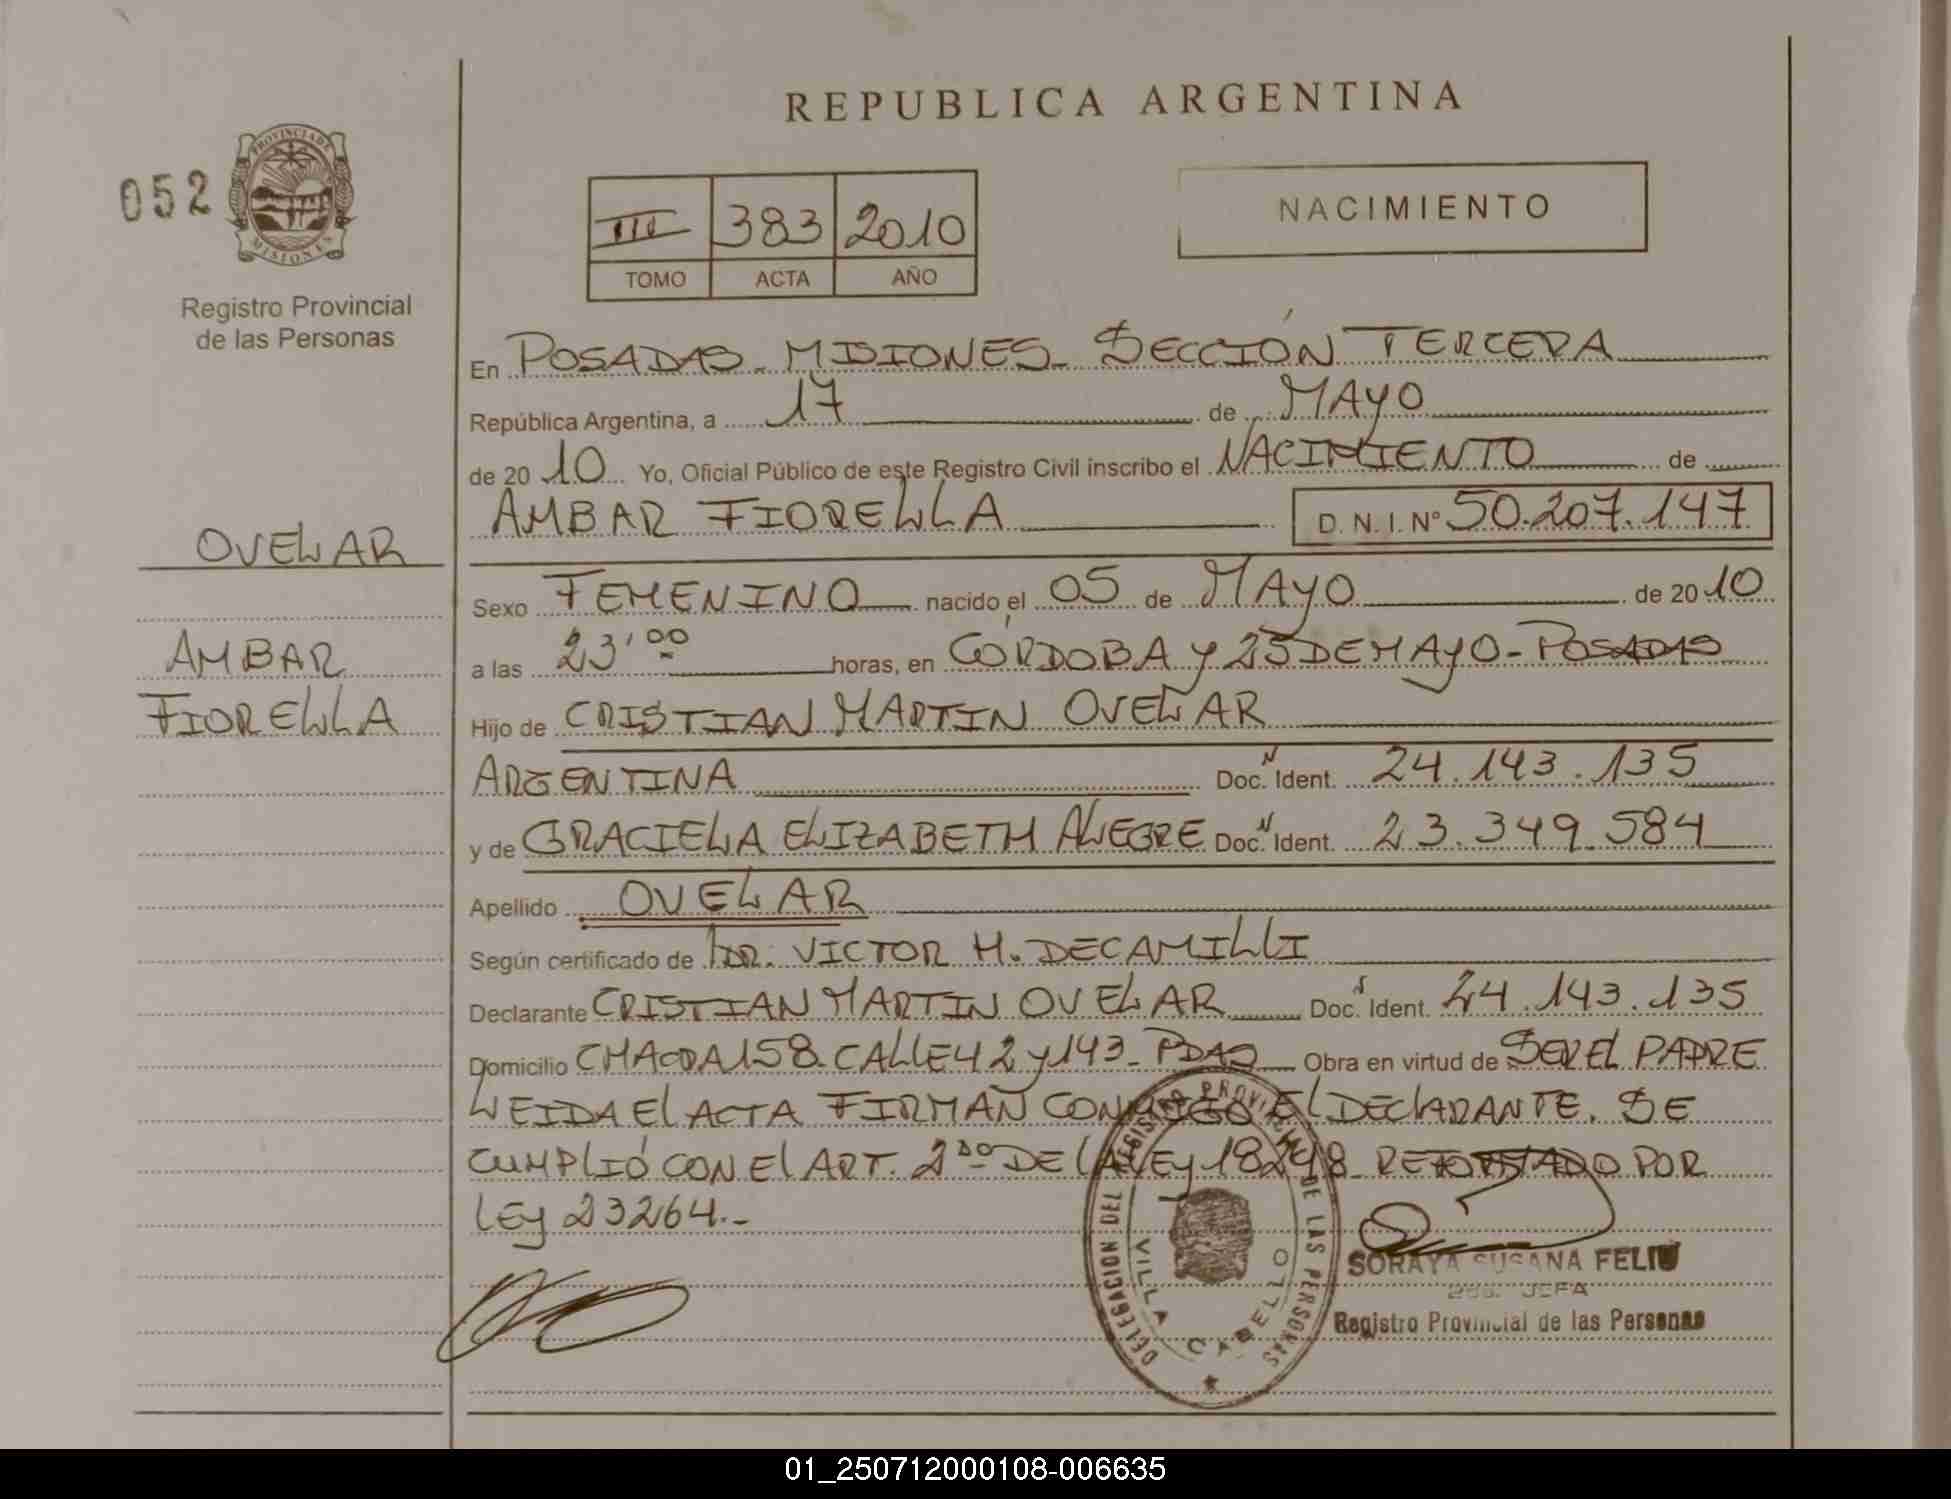 REPUBLICA ARGENTINA
052
PROVINCIA DE
MISIONES
Registro Provincial
de las Personas
III 383 2010
TOMO ACTA AÑO
NACIMIENTO
En POSADAS - MISIONES - SECCIÓN TERCERA
República Argentina, a 17 de MAYO
de 20 10 Yo, Oficial Público de este Registro Civil inscribo el NACIMIENTO de
AMBAR FIORELLA D. N. I. Nº 50.207.147
OVELAR
AMBAR
FIORELLA
Sexo FEMENINO nacido el 05 de MAYO de 20 10
a las 23'00 horas, en CÓRDOBA y 25 DE MAYO - POSADAS
Hijo de CRISTIAN MARTIN OVELAR
ARGENTINA Doc. Ident. 24.143.135
y de GRACIELA ELIZABETH ALEGRE Doc. Ident. 23.349.584
Apellido OVELAR
Según certificado de DR. VICTOR H. DECAMILLI
Declarante CRISTIAN MARTIN OVELAR Doc. Ident. 24.143.135
Domicilio CHACRA 158 - CALLE 42 y 143 - PDAS Obra en virtud de SER EL PADRE
LEIDA El ACTA FIRMAN CONMIGO El DEClARANTE. SE
CUMPLIÓ CON El ART. 2do DE lA lEy 18248 - RETO POR
LEy 23264.-
DELEGACION DEL REGISTRO PROVINCIAL DE LAS PERSONAS
VILLA CABELLO
SORAYA SUSANA FELIU
JEFA
Registro Provincial de las Personas
01_250712000108-006635